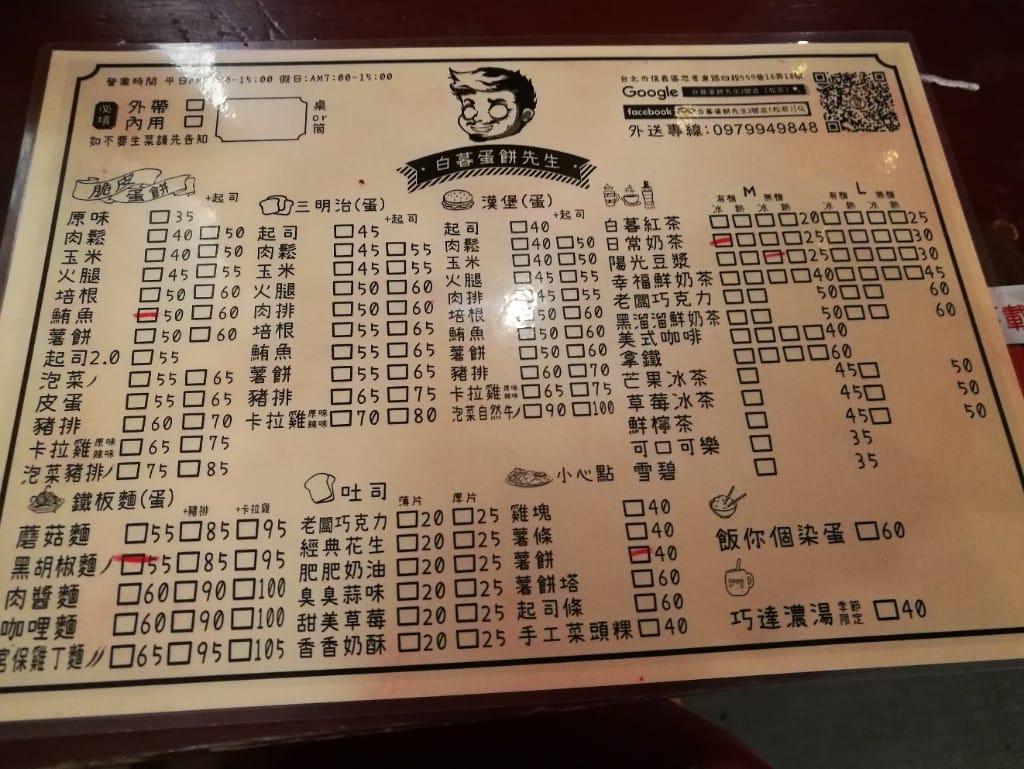 營業時間 平日AM 0-15:00 假日:AM7:00-15:00
必填
外帶 □
內用 □
桌or筒
如不要生菜請先告知
白暮蛋餅先生
台北市信義區忠孝東路四段559巷16弄18號
Google 白暮蛋餅先生2號店(松菸)
facebook 白暮蛋餅先生2號店(松菸)
外送專線:0979949848
脆皮蛋餅 +起司
原味 □35
肉鬆 □40 □50
玉米 □40 □50
火腿 □45 □55
培根 □50 □60
鮪魚 □50 □60
薯餅 □50 □60
起司2.0 □55
泡菜 □55 □65
皮蛋 □55 □65
豬排 □60 □70
卡拉雞 原味 辣味 □65 □75
泡菜豬排 □75 □85
三明治(蛋) +起司
起司 □45
肉鬆 □45 □55
玉米 □45 □55
火腿 □50 □60
肉排 □50 □60
培根 □55 □65
鮪魚 □55 □65
薯餅 □55 □65
豬排 □65 □75
卡拉雞 原味 辣味 □70 □80
漢堡(蛋) +起司
起司 □40
肉鬆 □40 □50
玉米 □40 □50
火腿 □45 □55
肉排 □45 □55
培根 □50 □60
鮪魚 □50 □60
薯餅 □50 □60
豬排 □60 □70
卡拉雞 原味 辣味 □65 □75
泡菜自然牛 □90 □100
M L
有糖 無糖 有糖 無糖
冰 熱 冰 熱 冰 熱 冰 熱
白暮紅茶 □□□□20 □□□□25
日常奶茶 □□□□25 □□□□30
陽光豆漿 □□□□25 □□□□30
幸福鮮奶茶 □□□□40 □□□□45
老闆巧克力 □□ 50 □□ 60
黑溜溜鮮奶茶 □□ 50 □□ 60
美式咖啡 □□□□40
拿鐵 □□□□60
芒果冰茶 □ 45 □ 50
草莓冰茶 □ 45 □ 50
鮮檸茶 □ 45 □ 50
可口可樂 □ 35
雪碧 □ 35
鐵板麵(蛋) +豬排 +卡拉雞
蘑菇麵 □55 □85 □95
黑胡椒麵 □55 □85 □95
肉醬麵 □60 □90 □100
咖哩麵 □60 □90 □100
宮保雞丁麵 □65 □95 □105
吐司 薄片 厚片
老闆巧克力 □20 □25
經典花生 □20 □25
肥肥奶油 □20 □25
臭臭蒜味 □20 □25
甜美草莓 □20 □25
香香奶酥 □20 □25
小心點
雞塊 □40
薯條 □40
薯餅 □40
薯餅塔 □60
起司條 □60
手工菜頭粿 □40
飯你個染蛋 □60
巧達濃湯 季節限定 □40